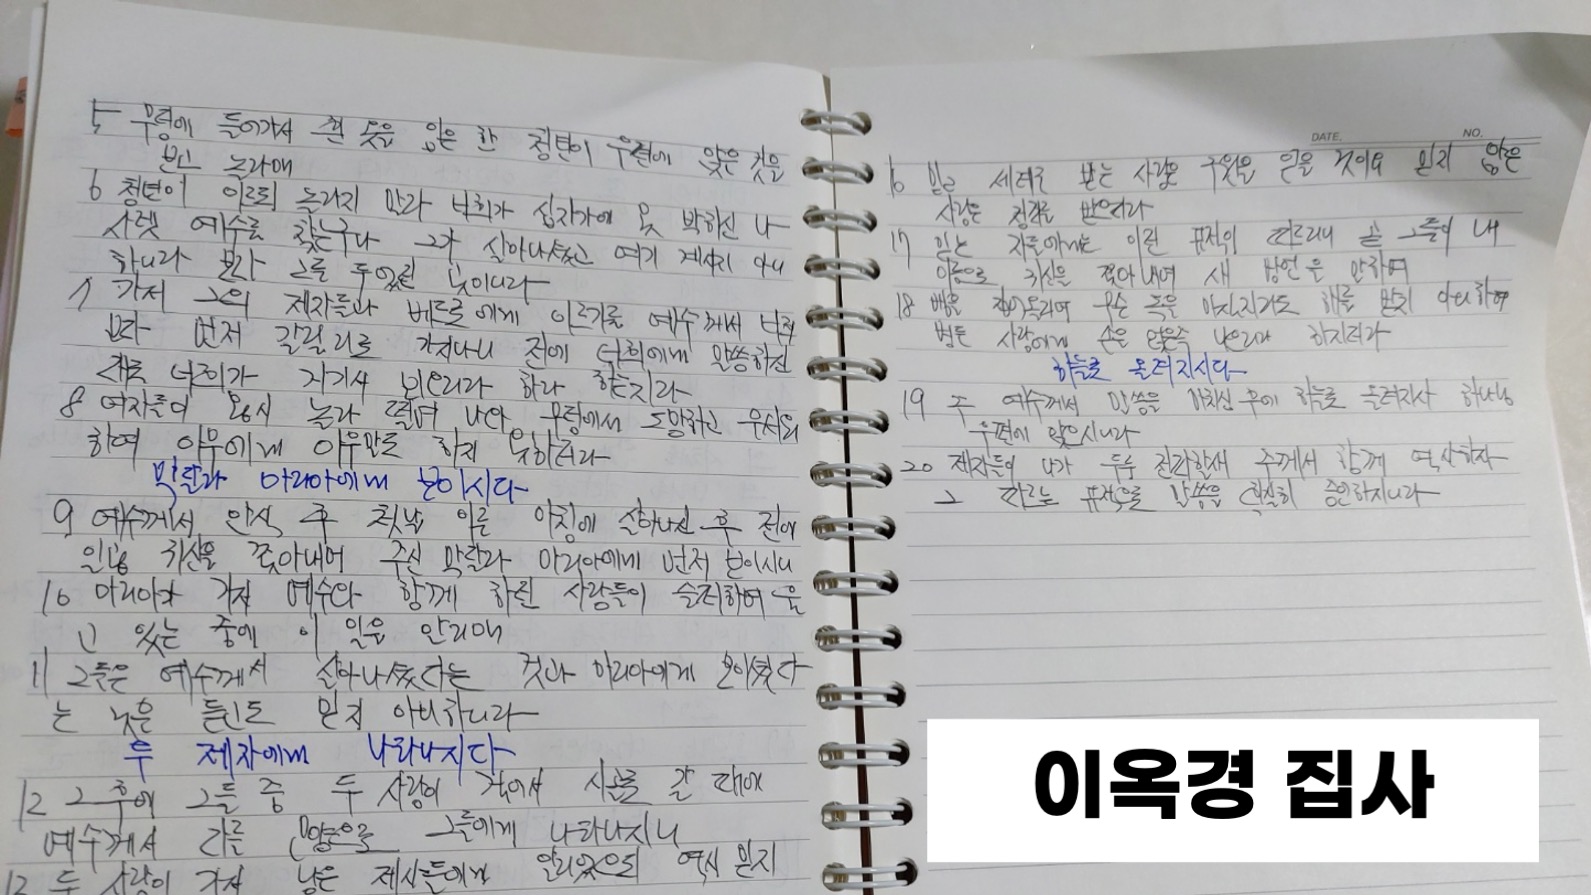 5 무덤에 들어가서 흰 옷을 입은 한 청년이 우편에 앉은 것을
보고 놀라매
6 청년이 이르되 놀라지 말라 너희가 십자가에 못 박히신 나
사렛 예수를 찾는구나 그가 살아나셨고 여기 계시지 아니
하니라 보라 그를 두었던 곳이니라
7 가서 그의 제자들과 베드로에게 이르기를 예수께서 너희
보다 먼저 갈릴리로 가시나니 전에 너희에게 말씀하신
대로 너희가 거기서 뵈오리라 하라 하는지라
8 여자들이 몹시 놀라 떨며 나와 무덤에서 도망하고 무서워
하여 아무에게 아무말도 하지 못하더라
막달라 마리아에게 보이시다
9 예수께서 안식 후 첫날 이른 아침에 살아나신 후 전에
일곱 귀신을 쫓아내어 주신 막달라 마리아에게 먼저 보이시니
10 마리아가 가서 예수와 함께 하던 사람들이 슬퍼하며 울
고 있는 중에 이 일을 알리매
11 그들은 예수께서 살아나셨다는 것과 마리아에게 보이셨다
는 것을 듣고도 믿지 아니하니라
두 제자에게 나타나시다
12 그 후에 그들 중 두 사람이 걸어서 시골로 갈 때에
예수께서 다른 모양으로 그들에게 나타나시니
13 두 사람이 가서 남은 제자들에게 알리었으되 역시 믿지
DATE. NO.
16 믿고 세례를 받는 사람은 구원을 얻을 것이요 믿지 않은
사람은 정죄를 받으리라
17 믿는 자들에게는 이런 표적이 따르리니 곧 그들이 내
이름으로 귀신을 쫓아내며 새 방언을 말하며
18 뱀을 집어올리며 무슨 독을 마실지라도 해를 받지 아니하며
병든 사람에게 손을 얹은즉 나으리라 하시더라
하늘로 올려지시다
19 주 예수께서 말씀을 마치신 후에 하늘로 올려지사 하나님
우편에 앉으시니라
20 제자들이 나가 두루 전파할새 주께서 함께 역사하사
그 따르는 표적으로 말씀을 확실히 증언하시니라
이옥경 집사